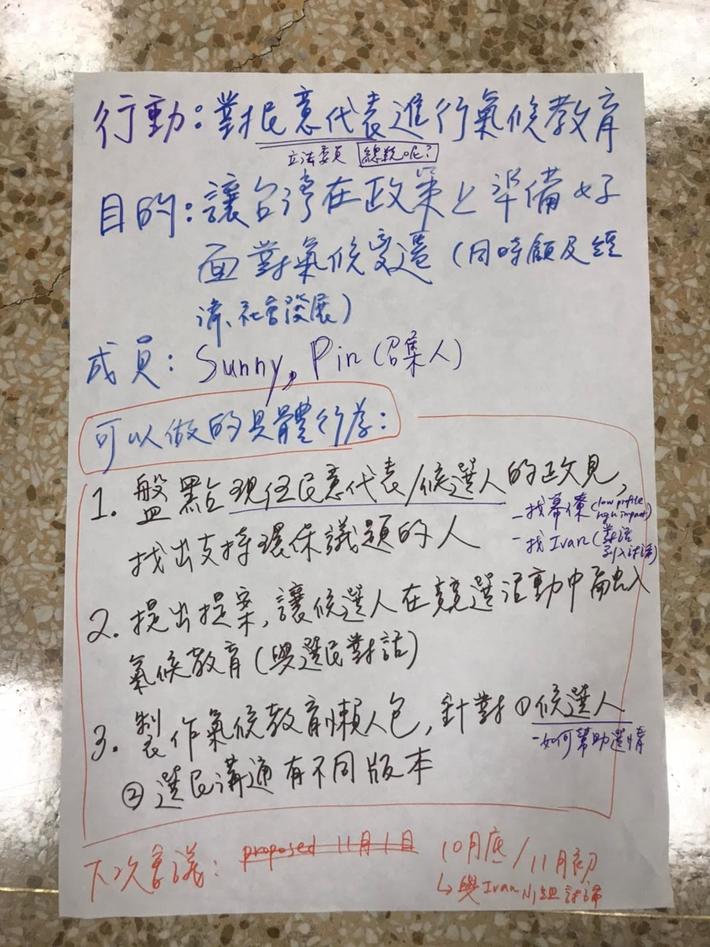 行動：對民意代表進行氣候教育
立法委員 總統呢？
目的：讓台灣在政策上準備好
面對氣候變遷（同時顧及經
濟、社會發展）
成員：Sunny, Pin（召集人）
可以做的具體行為：
1. 盤點現任民意代表/候選人的政見，
找出支持環保議題的人
-找幕僚（low profile high impact）
-找Ivan（
2. 提出提案，讓候選人在競選活動中融入
氣候教育（與選民對話）
3. 製作氣候教育懶人包，針對①候選人
-如何幫助選情
②選民溝通有不同版本
下次會議：proposed 11月1日 10月底/11月初
↳與Ivan小組討論